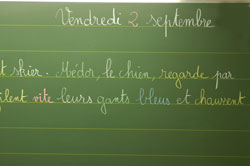 Vendredi 2 septembre
t skier. Médor, le chien, regarde par
ilent vite leurs gants bleus et chaussent